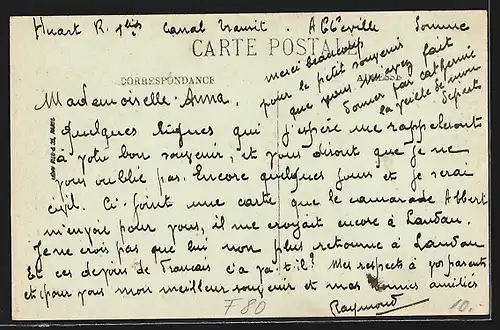 Huart R. Canal transit. Abbeville Somme
CARTE POSTALE
CORRESPONDANCE
ADRESSE
merci beaucoup
pour le petit souvenir
que vous m'avez fait
donner par Catherine
la veille de
départ
Mademoiselle Anna.
Quelques lignes qui j'espère me rappelleront
à votre bon souvenir, et vous diront que je ne
vous oublie pas. Encore quelques jours et je serai
civil. Ci-joint une carte que le camarade Albert
m'envoie pour vous, il me croyait encore à Landau.
Je ne crois pas que lui non plus retourne à Landau
Et ces devoirs de Français ç'a va-t-il? Mes respects à vos parents
et pour vous mon meilleur souvenir et mes bonnes amitiés
Raymond
F80
10.-